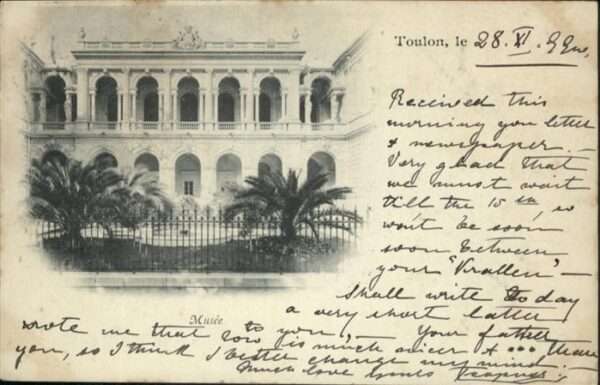 Toulon, le 28. XI. 99
Received this
morning you letter
& newspaper. —
Very glad that
we must wait
till the 15th
won't be soon
soon between
your "Krallen" —
Shall write to day
a very short letter
Musée
wrote me that to you, — Your father
is much nicer & ... than
you, so I think I better change my mind.
Much love yours